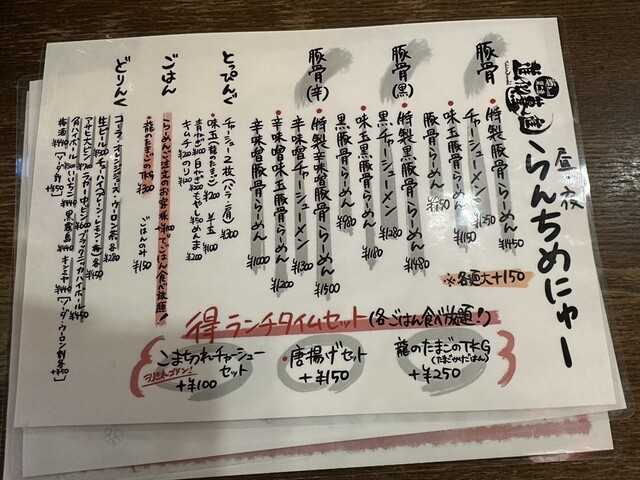 昼・夜
らんちめにゅー
豚骨
・特製豚骨らーめん ¥1450
チャーシューメン ¥1350
・味玉豚骨らーめん ¥1150
豚骨らーめん ¥950
※各麺大+150
豚骨(黒)
・特製黒豚骨らーめん ¥1480
黒チャーシューメン ¥1380
・味玉黒豚骨らーめん ¥1180
黒豚骨らーめん ¥980
豚骨(辛)
・特製辛味噌豚骨らーめん ¥1500
辛味噌チャーシューメン ¥1300
辛味噌味玉豚骨らーめん ¥1200
辛味噌豚骨らーめん ¥1000
とっぴんぐ
チャーシュー2枚(バラ・肩) ¥300
・味玉(龍のたまご) ¥200
青ねぎ¥100 白ねぎ¥200 もやし¥50 めんま¥200
キムチ¥200 のり¥100
ごはん
らーめんご注文のお客様+¥100でごはん食べ放題!
・龍のたまごのTKG ¥300
ごはんのみ ¥150
どりんく
コーラ・オレンジジュース・ウーロン茶 各¥280
得 ランチタイムセット(各ごはん食べ放題!)
こまちつれチャーシューセット +¥100
・唐揚げセット +¥150
龍のたまごのTKG (たまごかけごはん) +¥250